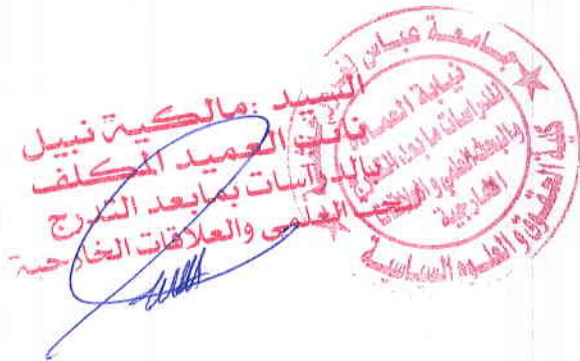 السيد : مالكية نبيل
نائب العميد المكلف
بالدراسات بمابعد التدرج
والعلاقات الخارجية
جامعة عباس
نيابة العمادة
للدراسات ما بعد التدرج
والبحث العلمي و العلاقات
الخارجية
كلية الحقوق و العلوم السياسية